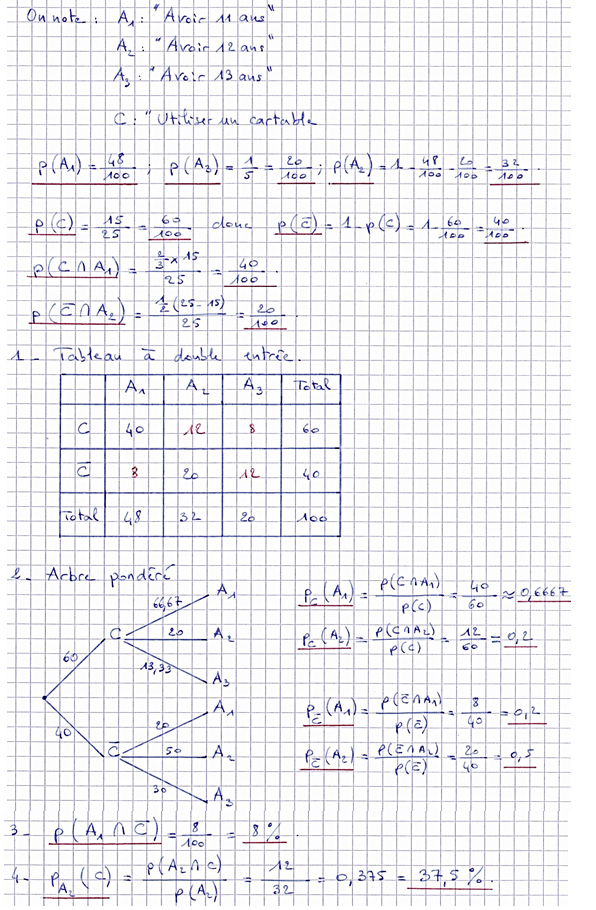 On note : A₁ : "Avoir 11 ans"
A₂ : "Avoir 12 ans"
A₃ : "Avoir 13 ans"
C : "Utiliser un cartable
p(A₁) = 48/100 ; p(A₃) = 1/5 = 20/100 ; p(A₂) = 1 - 48/100 - 20/100 = 32/100 .
p(C) = 15/25 = 60/100 donc p(C̄) = 1 - p(C) = 1 - 60/100 = 40/100 .
p(C ∩ A₁) = (2/3 × 15)/25 = 40/100 .
p(C̄ ∩ A₂) = (1/2 (25 - 15))/25 = 20/100 .
1 - Tableau à double entrée.
A₁ A₂ A₃ Total
C 40 12 8 60
C̄ 8 20 12 40
Total 48 32 20 100
2 - Arbre pondéré
60 C 66,67 A₁
20 A₂
13,33 A₃
40 C̄ 20 A₁
50 A₂
30 A₃
p_C(A₁) = p(C ∩ A₁)/p(C) = 40/60 ≈ 0,6667
p_C(A₂) = p(C ∩ A₂)/p(C) = 12/60 = 0,2
p_C̄(A₁) = p(C̄ ∩ A₁)/p(C̄) = 8/40 = 0,2
p_C̄(A₂) = p(C̄ ∩ A₂)/p(C̄) = 20/40 = 0,5
3 - p(A₁ ∩ C̄) = 8/100 = 8 % .
4 - p_A₂(C) = p(A₂ ∩ C)/p(A₂) = 12/32 = 0,375 = 37,5 % .